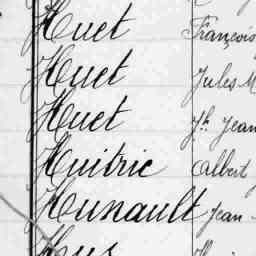 Huet François
Huet Jules M
Huet Jh Jean
Huitric Albert
Hunault Jean
Hus